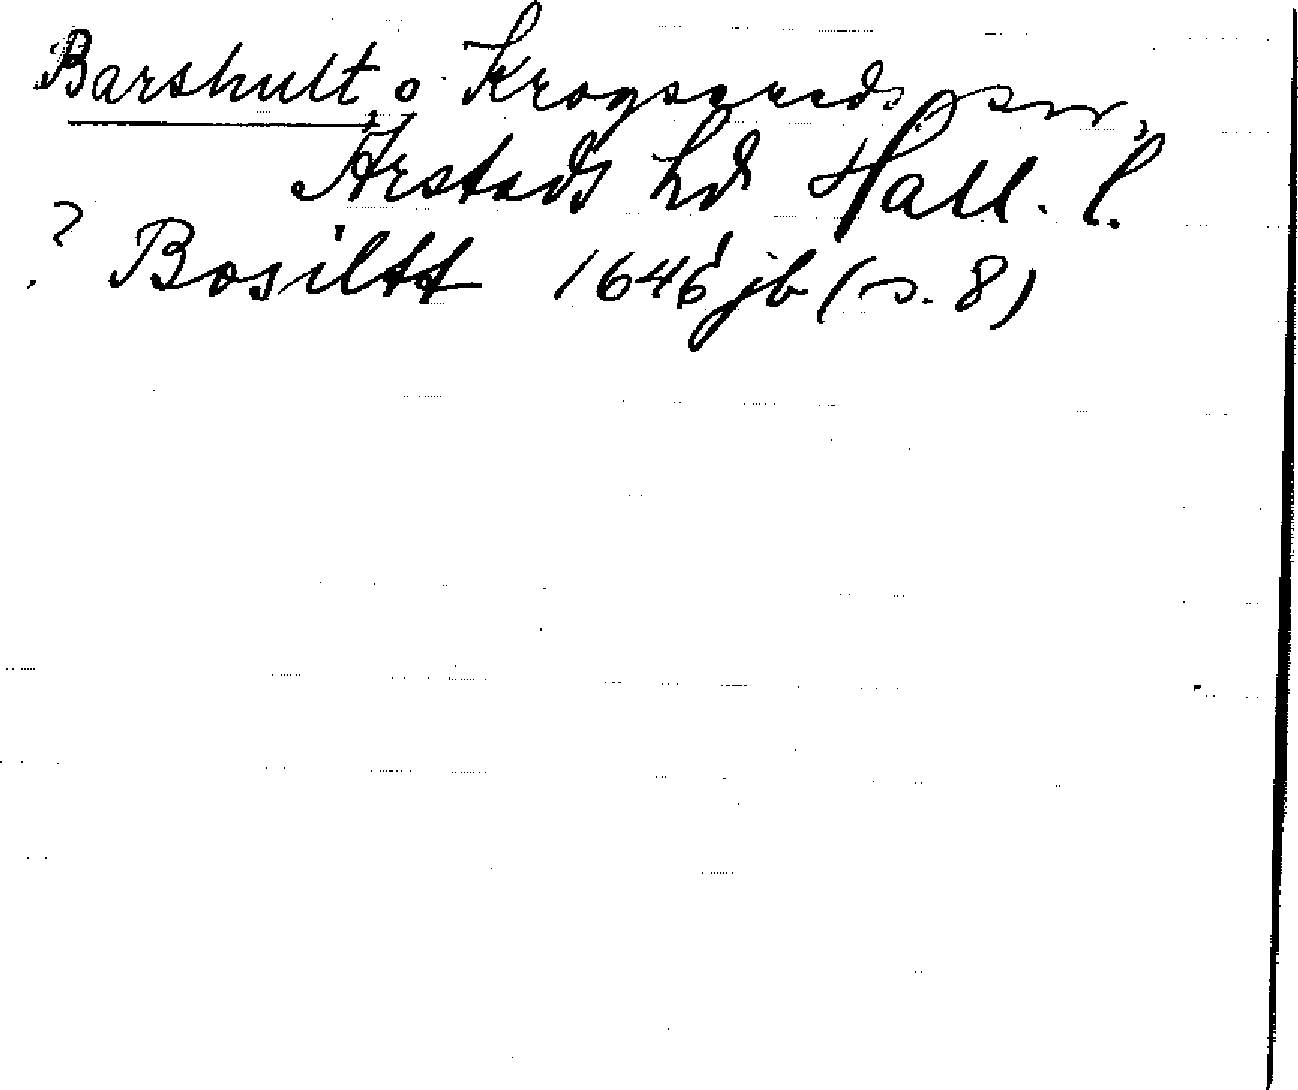 Barshult, Krogsereds sn,
Årstads hd Hall. l.
? Bosiltt 1646 jb (s. 8)